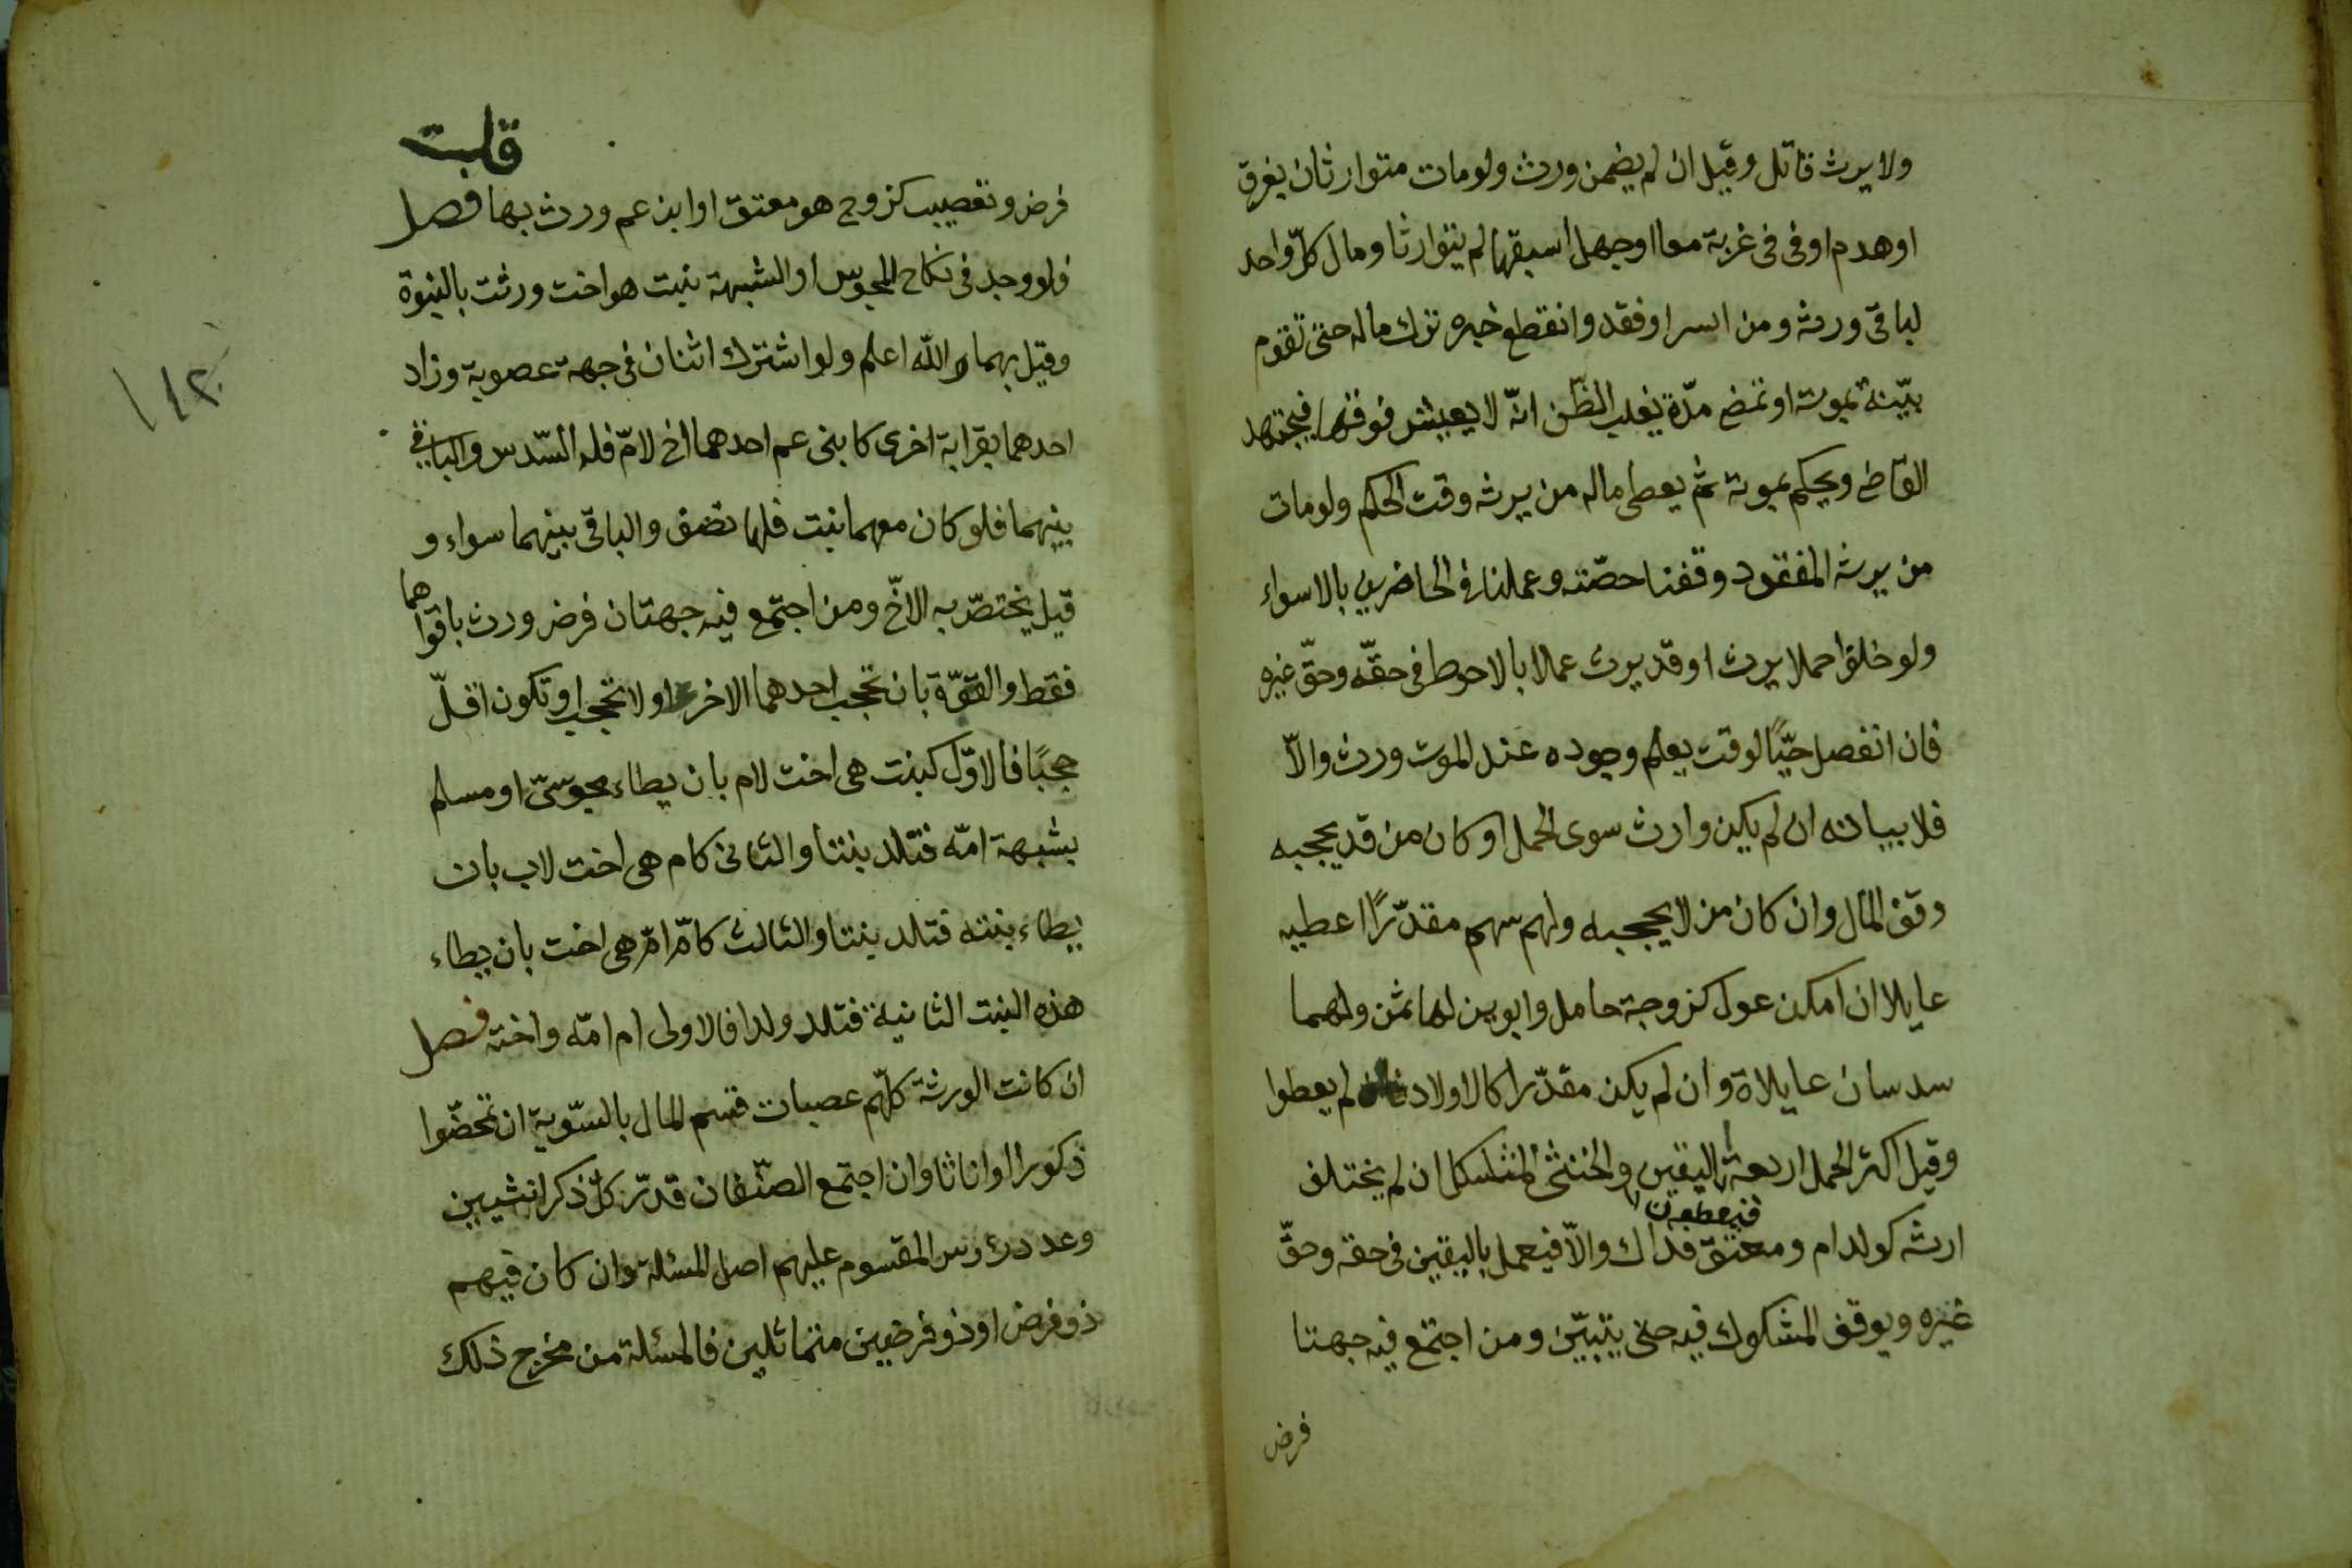 ولا يرث قاتل وقيل ان لم يضمن ورث ولو مات متوارثان بغرق
او هدم او فى فى غربة معا او جهل اسبقهما لم يتوارثا ومال كلّ واحد
لباقى ورثه ومن اسر او فقد وانقطع خبره ترك ماله حتى تقوم
بيّنة بموته او تمض مدّة يغلب الظّن انّه لا يعيش فوقها فيجتهد
القاضى ويحكم بموته ثم يعطى ماله من يرثه وقت الحكم ولو مات
من يرثه المفقود وقفنا حصّته وعملنا فى الحاضرين بالاسواء
ولو خلفوا حملا يرث او قد يرث عملا بالاحوط فى حقّه وحقّ غيره
فان انفصل حيًّا لوقت يعلم وجوده عند الموت ورث والّا
فلا بيانه ان لم يكن وارث سوى الحمل او كان من قد يحجبه
وقف المال وان كان من لا يحجبه ولهم سهم مقدّرًا اعطيه
عايلا ان امكن عول كزوجة حامل وابوين لها ثمن ولهما
سدسان عايلاة وان لم يكن مقدّرا كالاولاد لم يعطوا
وقيل اكثر الحمل اربعة فيعطون اليقين والخنثى المشكل ان لم يختلف
ارثه كولد ام ومعتق فذاك والّا فيعمل باليقين فى حقه وحقّ
غيره ويوقف المشكوك فيه حتى يتبيّن ومن اجتمع فيه جهتا
فرض
قلت
فرض وتعصيب كزوج هو معتق او ابن عم ورث بهما فصل
فلو وجد فى نكاح المجوس او الشبهة بنت هو اخت ورثت بالبنوة
وقيل بهما والله اعلم ولو اشترك اثنان فى جهة عصوبة وزاد
احدهما بقرابة اخرى كابنى عم احدهما اخ لامّ فله السّدس والباقى
بينهما فلو كان معهما بنت فلها نصف والباقى بينهما سواء و
قيل يختصّ به الاخّ ومن اجتمع فيه جهتان فرض ورث باقواهما
فقط والقوّة بان تحجب احدهما الاخرى او لا تحجب او تكون اقلّ
حجبًا فالاوّل كبنت هى اخت لام بان يطاء مجوسىّ او مسلم
بشبهة امّه فتلد بنتا والثانى كام هى اخت لاب بان
يطاء بنته فتلد بنتا والثالث كامّ امّ هى اخت بان يطاء
هذه البنت الثانية فتلد ولدا فالاولى ام امّه واخته فصل
ان كانت الورثة كلّهم عصبات قسم المال بالسّوية ان تمحضّوا
ذكورا او اناثا وان اجتمع الصّنفان قدّر كلّ ذكر انثيين
وعدد رؤس المقسوم عليهم اصل المسئلة وان كان فيهم
ذو فرض او ذو فرضين متماثلين فالمسئلة من مخرج ذلك